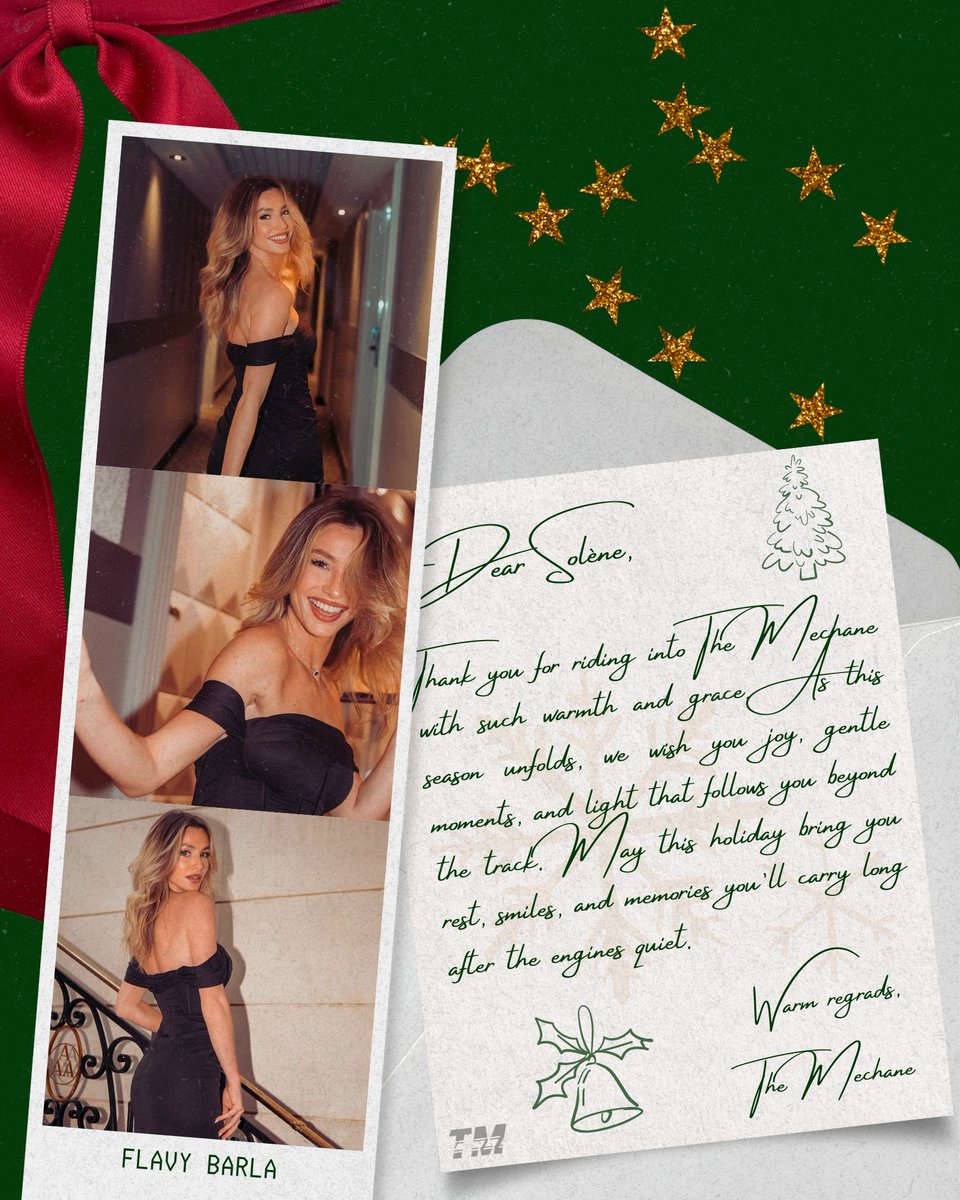 Dear Solène,
Thank you for riding into The Mechane
with such warmth and grace As this
season unfolds, we wish you joy, gentle
moments, and light that follows you beyond
the track. May this holiday bring you
rest, smiles, and memories you'll carry long
after the engines quiet.
Warm regrads,
The Mechane
TM
FLAVY BARLA